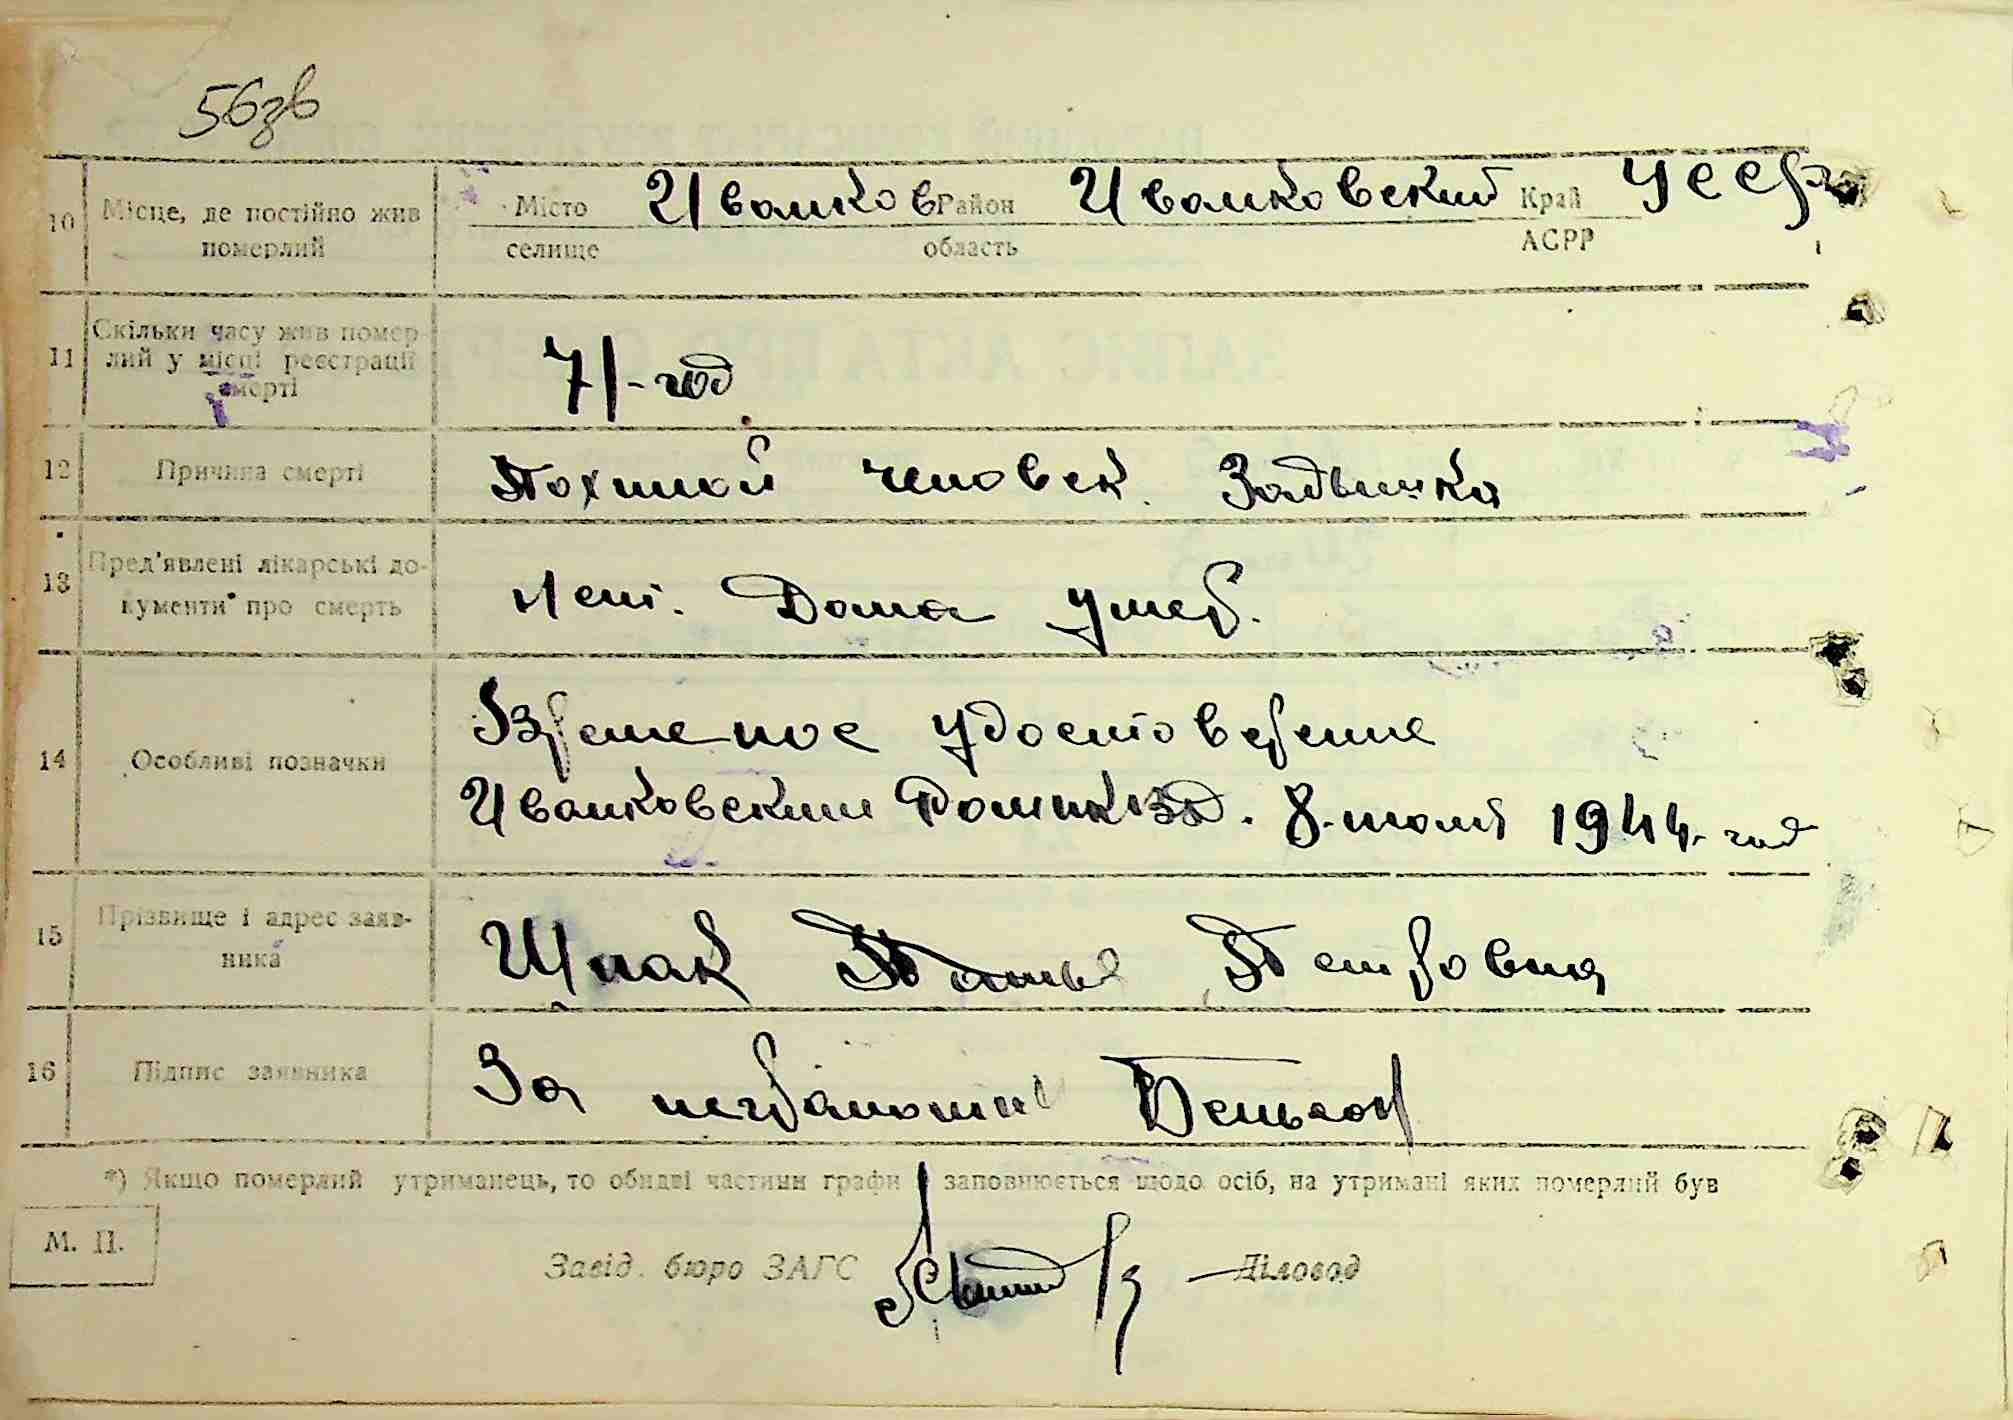 56зв
10 Місце, де постійно жив померлий Місто селище Иванков Район область Иванковский Край АСРР УССР
11 Скільки часу жив померлий у місці реєстрації смерті 71-год
12 Причина смерті Похилой человек. Задышка
13 Пред'явлені лікарські документи про смерть Нет. Дома умер.
14 Особливі позначки Временое удостоверение
Иванковским 8 июля 1944 год
15 Прізвище і адрес заявника Шпак Петровна
16 Підпис заявника За неграмотни
*) Якщо померлий утриманець, то обидві частини графи заповнюється щодо осіб, на утримані яких померлий був
М. П.
Завід. бюро ЗАГС Діловод